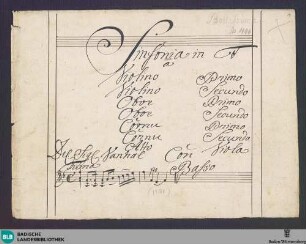 Sinfonia in F
a
Violino Primo
Violino Secondo
Oboe Primo
Oboe Secondo
Cornu Primo
Cornu Secondo
Alto Viola
Del Sig. Vanhal Con
Basso
BLB BADISCHE
LANDESBIBLIOTHEK